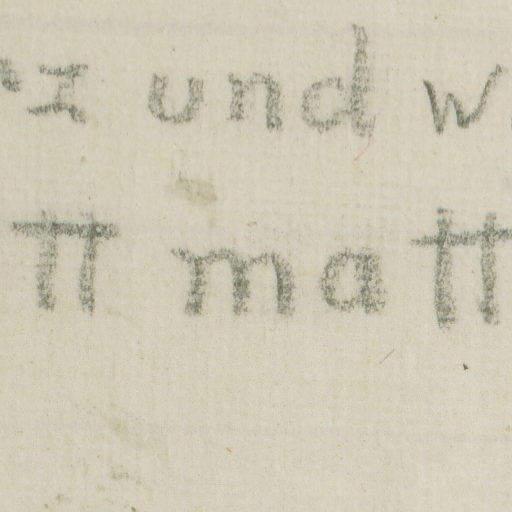 rz und w
tt matt